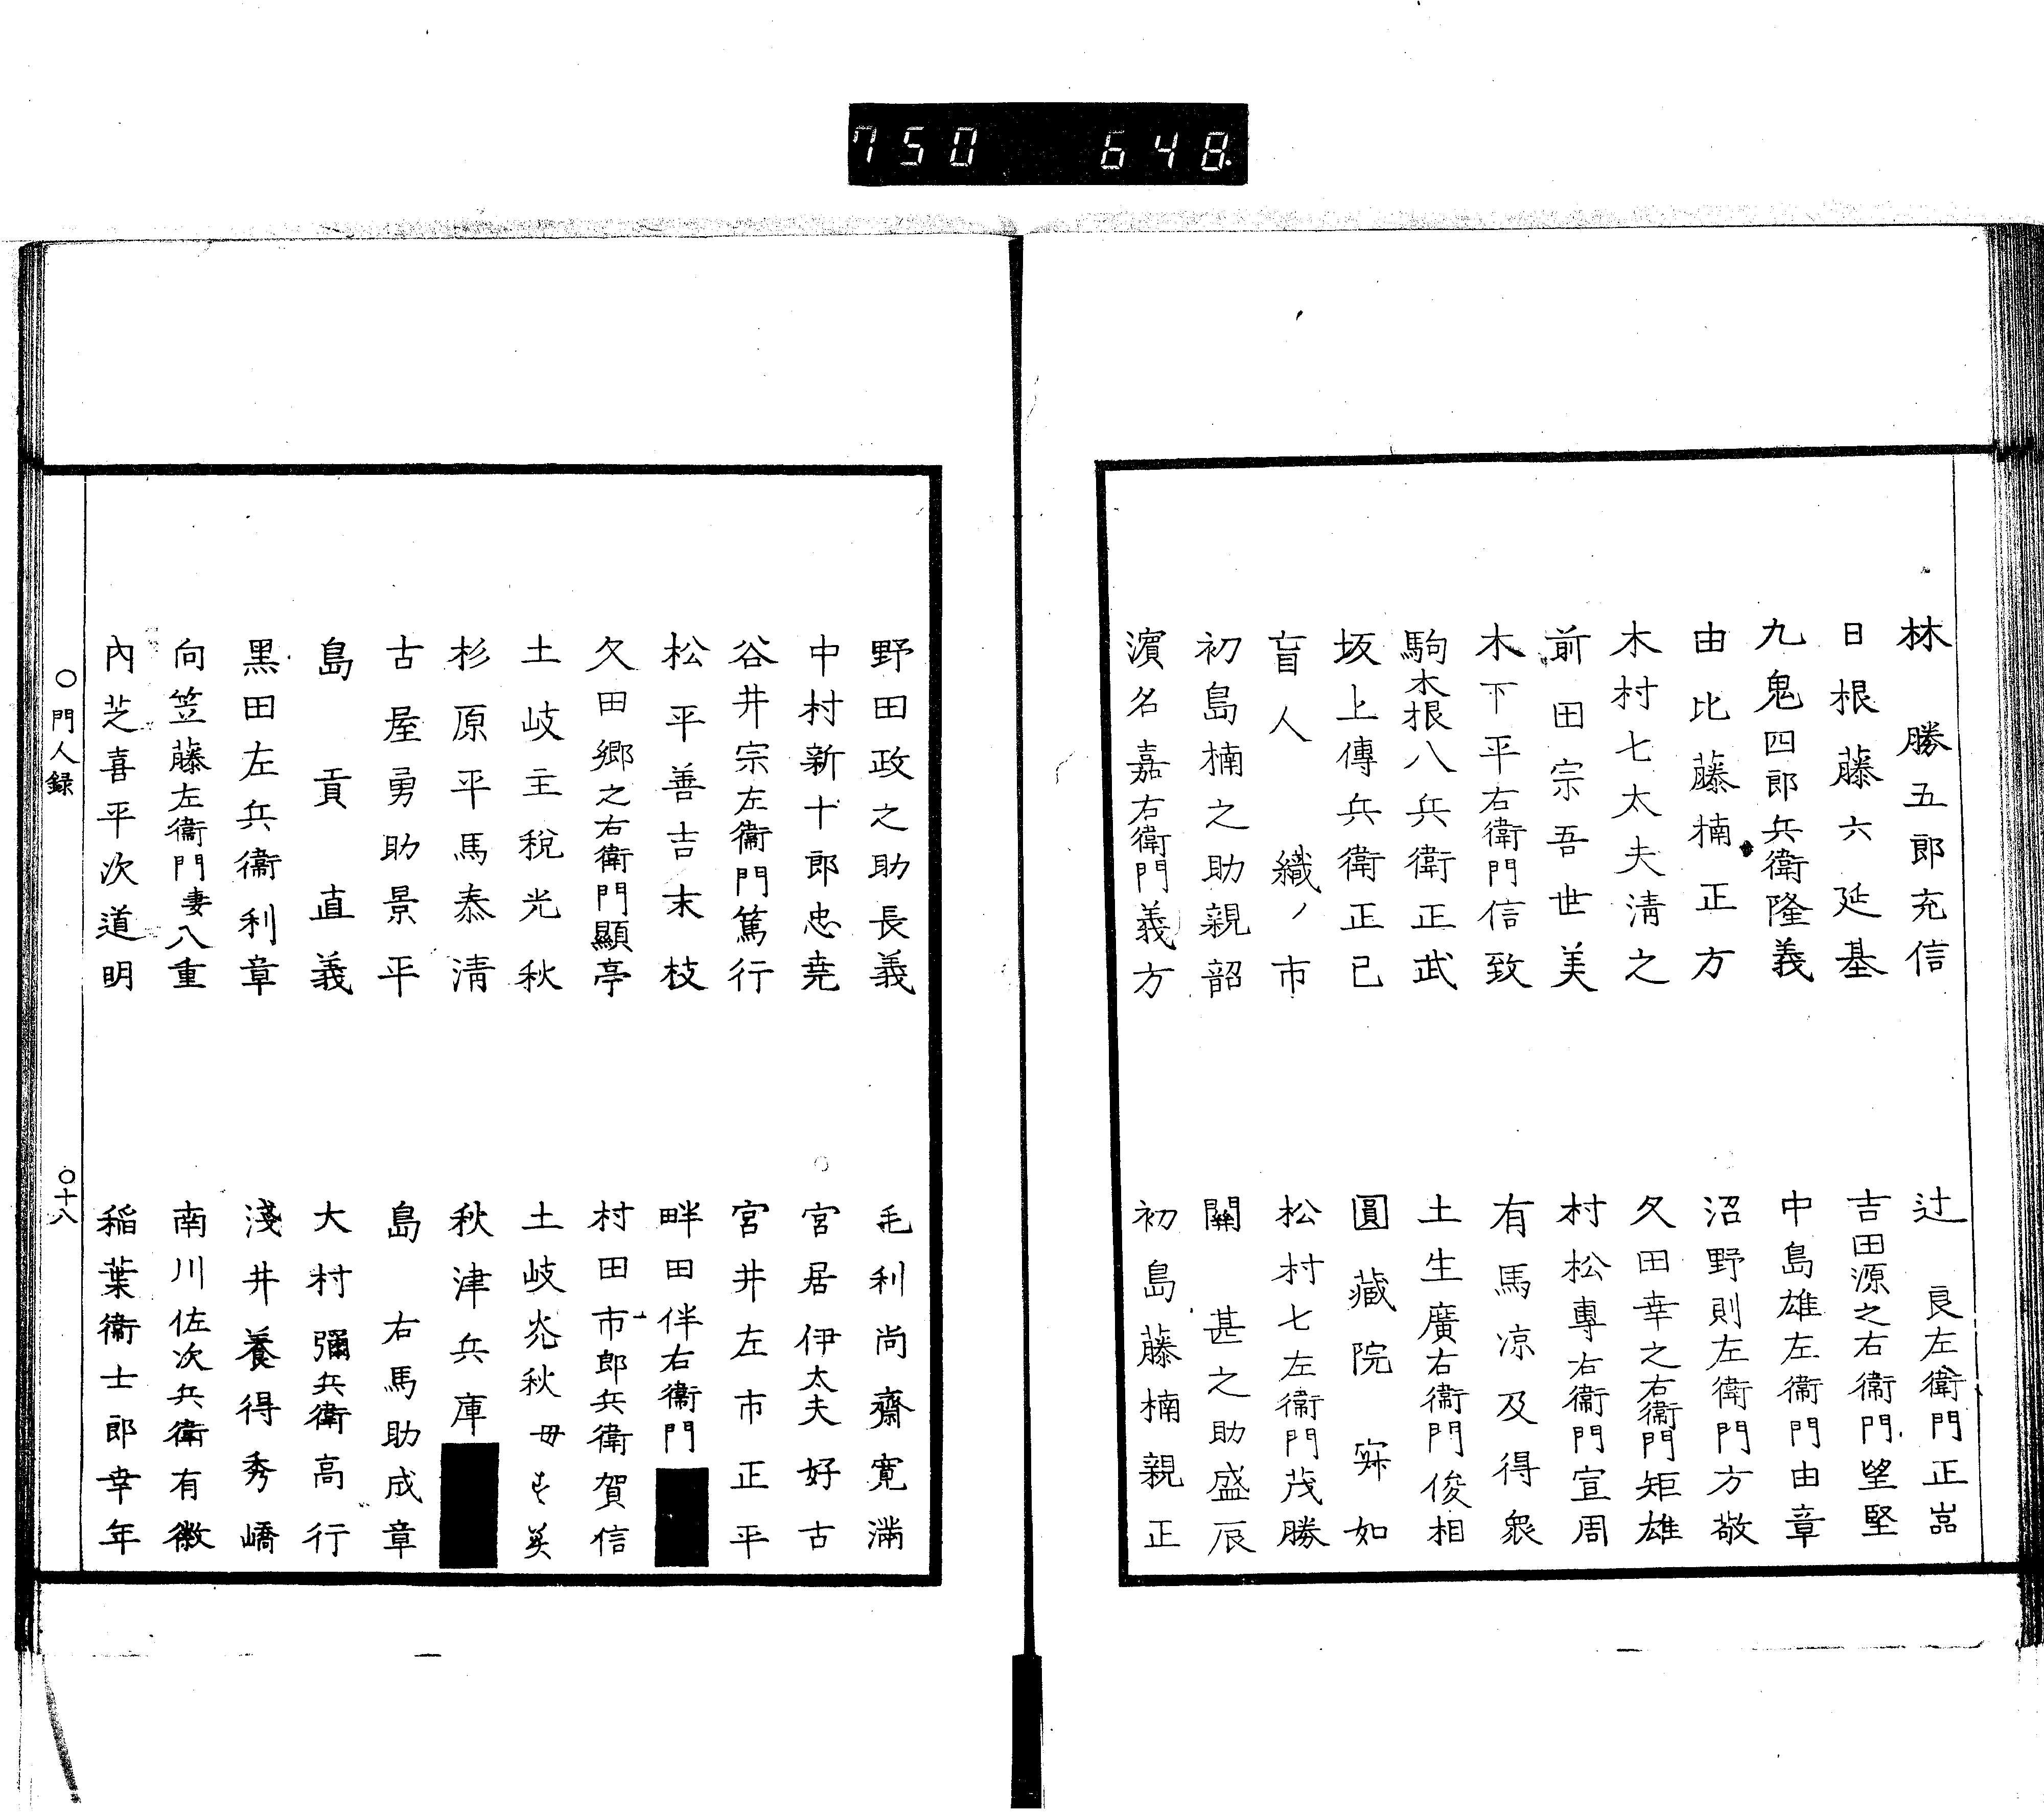 750 648.
林勝五郎充信
日根藤六延基
九鬼四郎兵衛隆義
由比藤楠正方
木村七太夫清之
前田宗吾世美
木下平右衛門信致
駒木根八兵衛正武
坂上傳兵衛正已
盲人織ノ市
初島楠之助親韶
濱名嘉右衛門義方
辻良左衛門正
吉田源之右衛門堅
中島雄左衛門由章
沼野則左衛門方敬
久田幸之右衛門矩雄
村松專右衛門宣周
有馬凉及得衆
土生廣右衛門俊相
圓藏院寀如
松村七左衛門茂勝
關甚之助盛辰
初島藤楠親正
野田政之助長義
中村新十郎忠堯
谷井宗左衛門篤行
松平善吉末枝
久田鄉之右衛門顯亭
土岐主稅光秋
杉原平馬泰清
古屋勇助景平
島貢直義
黑田左兵衛利章
向笠藤左衛門妻八重
內芝喜平次道明
毛利尚齋寬滿
宮居伊太夫好古
宮井左市正平
畔田伴右衛門
村田市郎兵衛賀信
土岐光秋母
秋津兵庫
島右馬助成章
大村彌兵衛高行
淺井養得秀嶠
南川佐次兵衛有徽
稲葉衛士郎幸年
〇門人録
〇十八